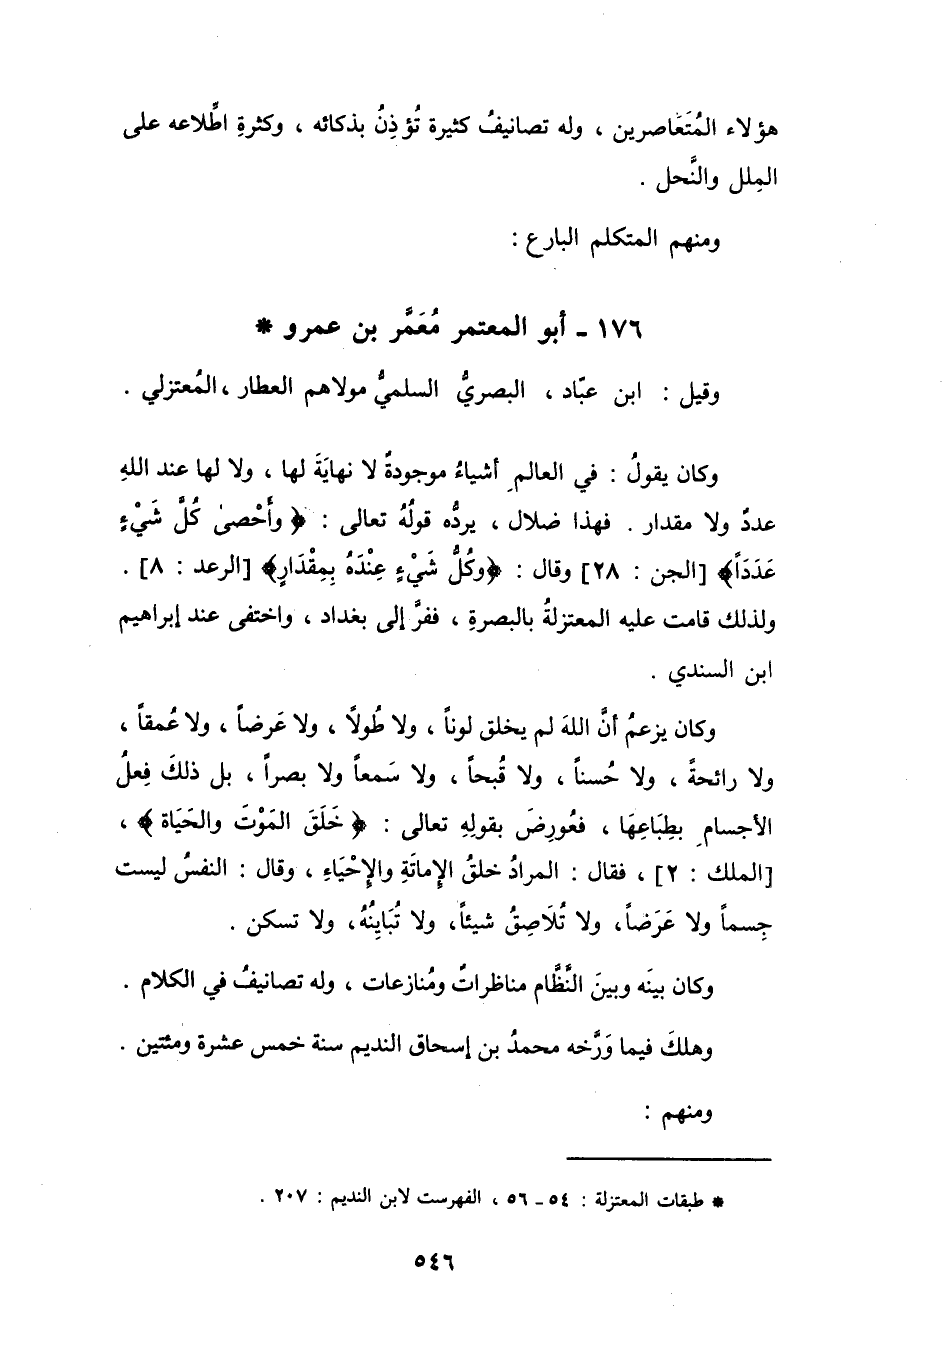 هؤلاء المُتَعَاصرين ، وله تصانيفُ كثيرة تُؤذِنُ بذكائه ، وكثرةِ اطِّلاعه على
المِلل والنَّحل .
ومنهم المتكلم البارع :
١٧٦ ـ أبو المعتمر مُعَمَّر بن عمرو *
وقيل : ابن عبّاد ، البصريُّ السلميُّ مولاهم العطار ، المُعتزلي .
وكان يقولُ : في العالمِ أشياءُ موجودةٌ لا نهايَةَ لها ، ولا لها عند اللهِ
عددٌ ولا مقدار . فهذا ضلال ، يردُّه قولُهُ تعالى : ﴿ وأَحْصىٰ كُلَّ شَيْءٍ
عَدَدَاً﴾ [الجن : ٢٨] وقال : ﴿وكُلُّ شَيْءٍ عِنْدَهُ بِمِقْدَارٍ﴾ [الرعد : ٨] .
ولذلك قامت عليه المعتزلةُ بالبصرةِ ، ففرَّ إلى بغداد ، واختفى عند إبراهيم
ابن السندي .
وكان يزعمُ أنَّ اللهَ لم يخلق لوناً ، ولا طُولًا ، ولا عَرضاً ، ولا عُمقاً ،
ولا رائحةً ، ولا حُسناً ، ولا قُبحاً ، ولا سَمعاً ولا بصراً ، بل ذلكَ فِعلُ
الأجسامِ بطِبَاعِهَا ، فعُورِضَ بقولِهِ تعالى : ﴿ خَلَقَ المَوْتَ والحَيَاة ﴾ ،
[الملك : ٢] ، فقال : المرادُ خلقُ الإِماتَةِ والإِحْيَاءِ ، وقال : النفسُ ليست
جِسماً ولا عَرَضاً، ولا تُلَاصِقُ شيئاً، ولا تُبَايِنُهُ، ولا تسكن .
وكان بينَه وبينَ النَّظَّام مناظراتٌ ومُنازعات ، وله تصانيفُ في الكلام .
وهلكَ فيما وَرَّخه محمدُ بن إسحاق النديم سنة خمس عشرة ومئتين .
ومنهم :
* طبقات المعتزلة : ٥٤ ـ ٥٦ ، الفهرست لابن النديم : ٢٠٧ .
٥٤٦